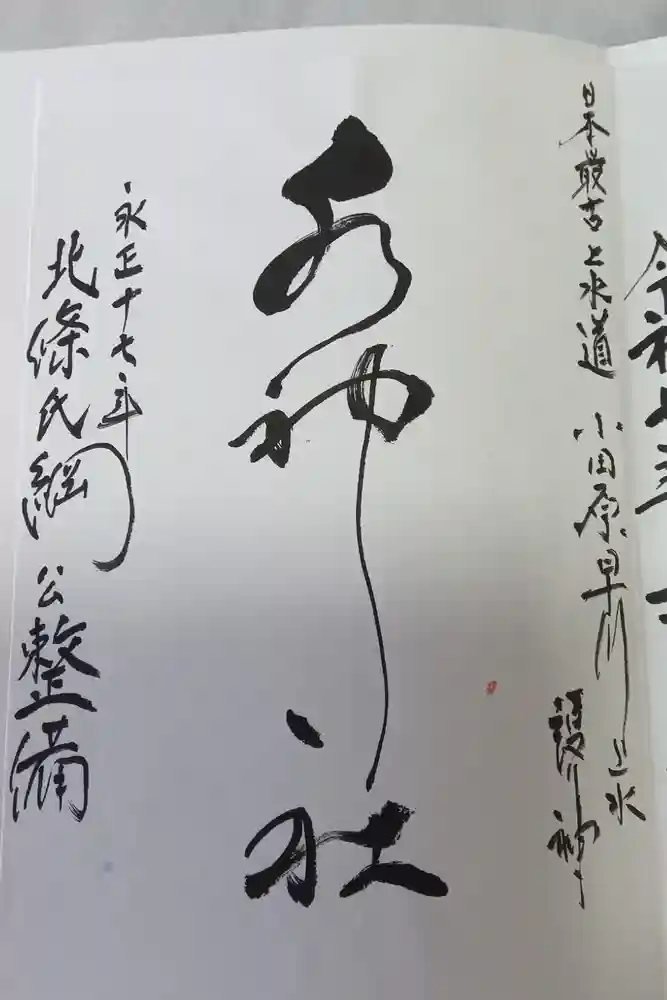 令和七年十
日本最古上水道 小田原早川上水
護神
水神社
永正十七年
北條氏綱公整備